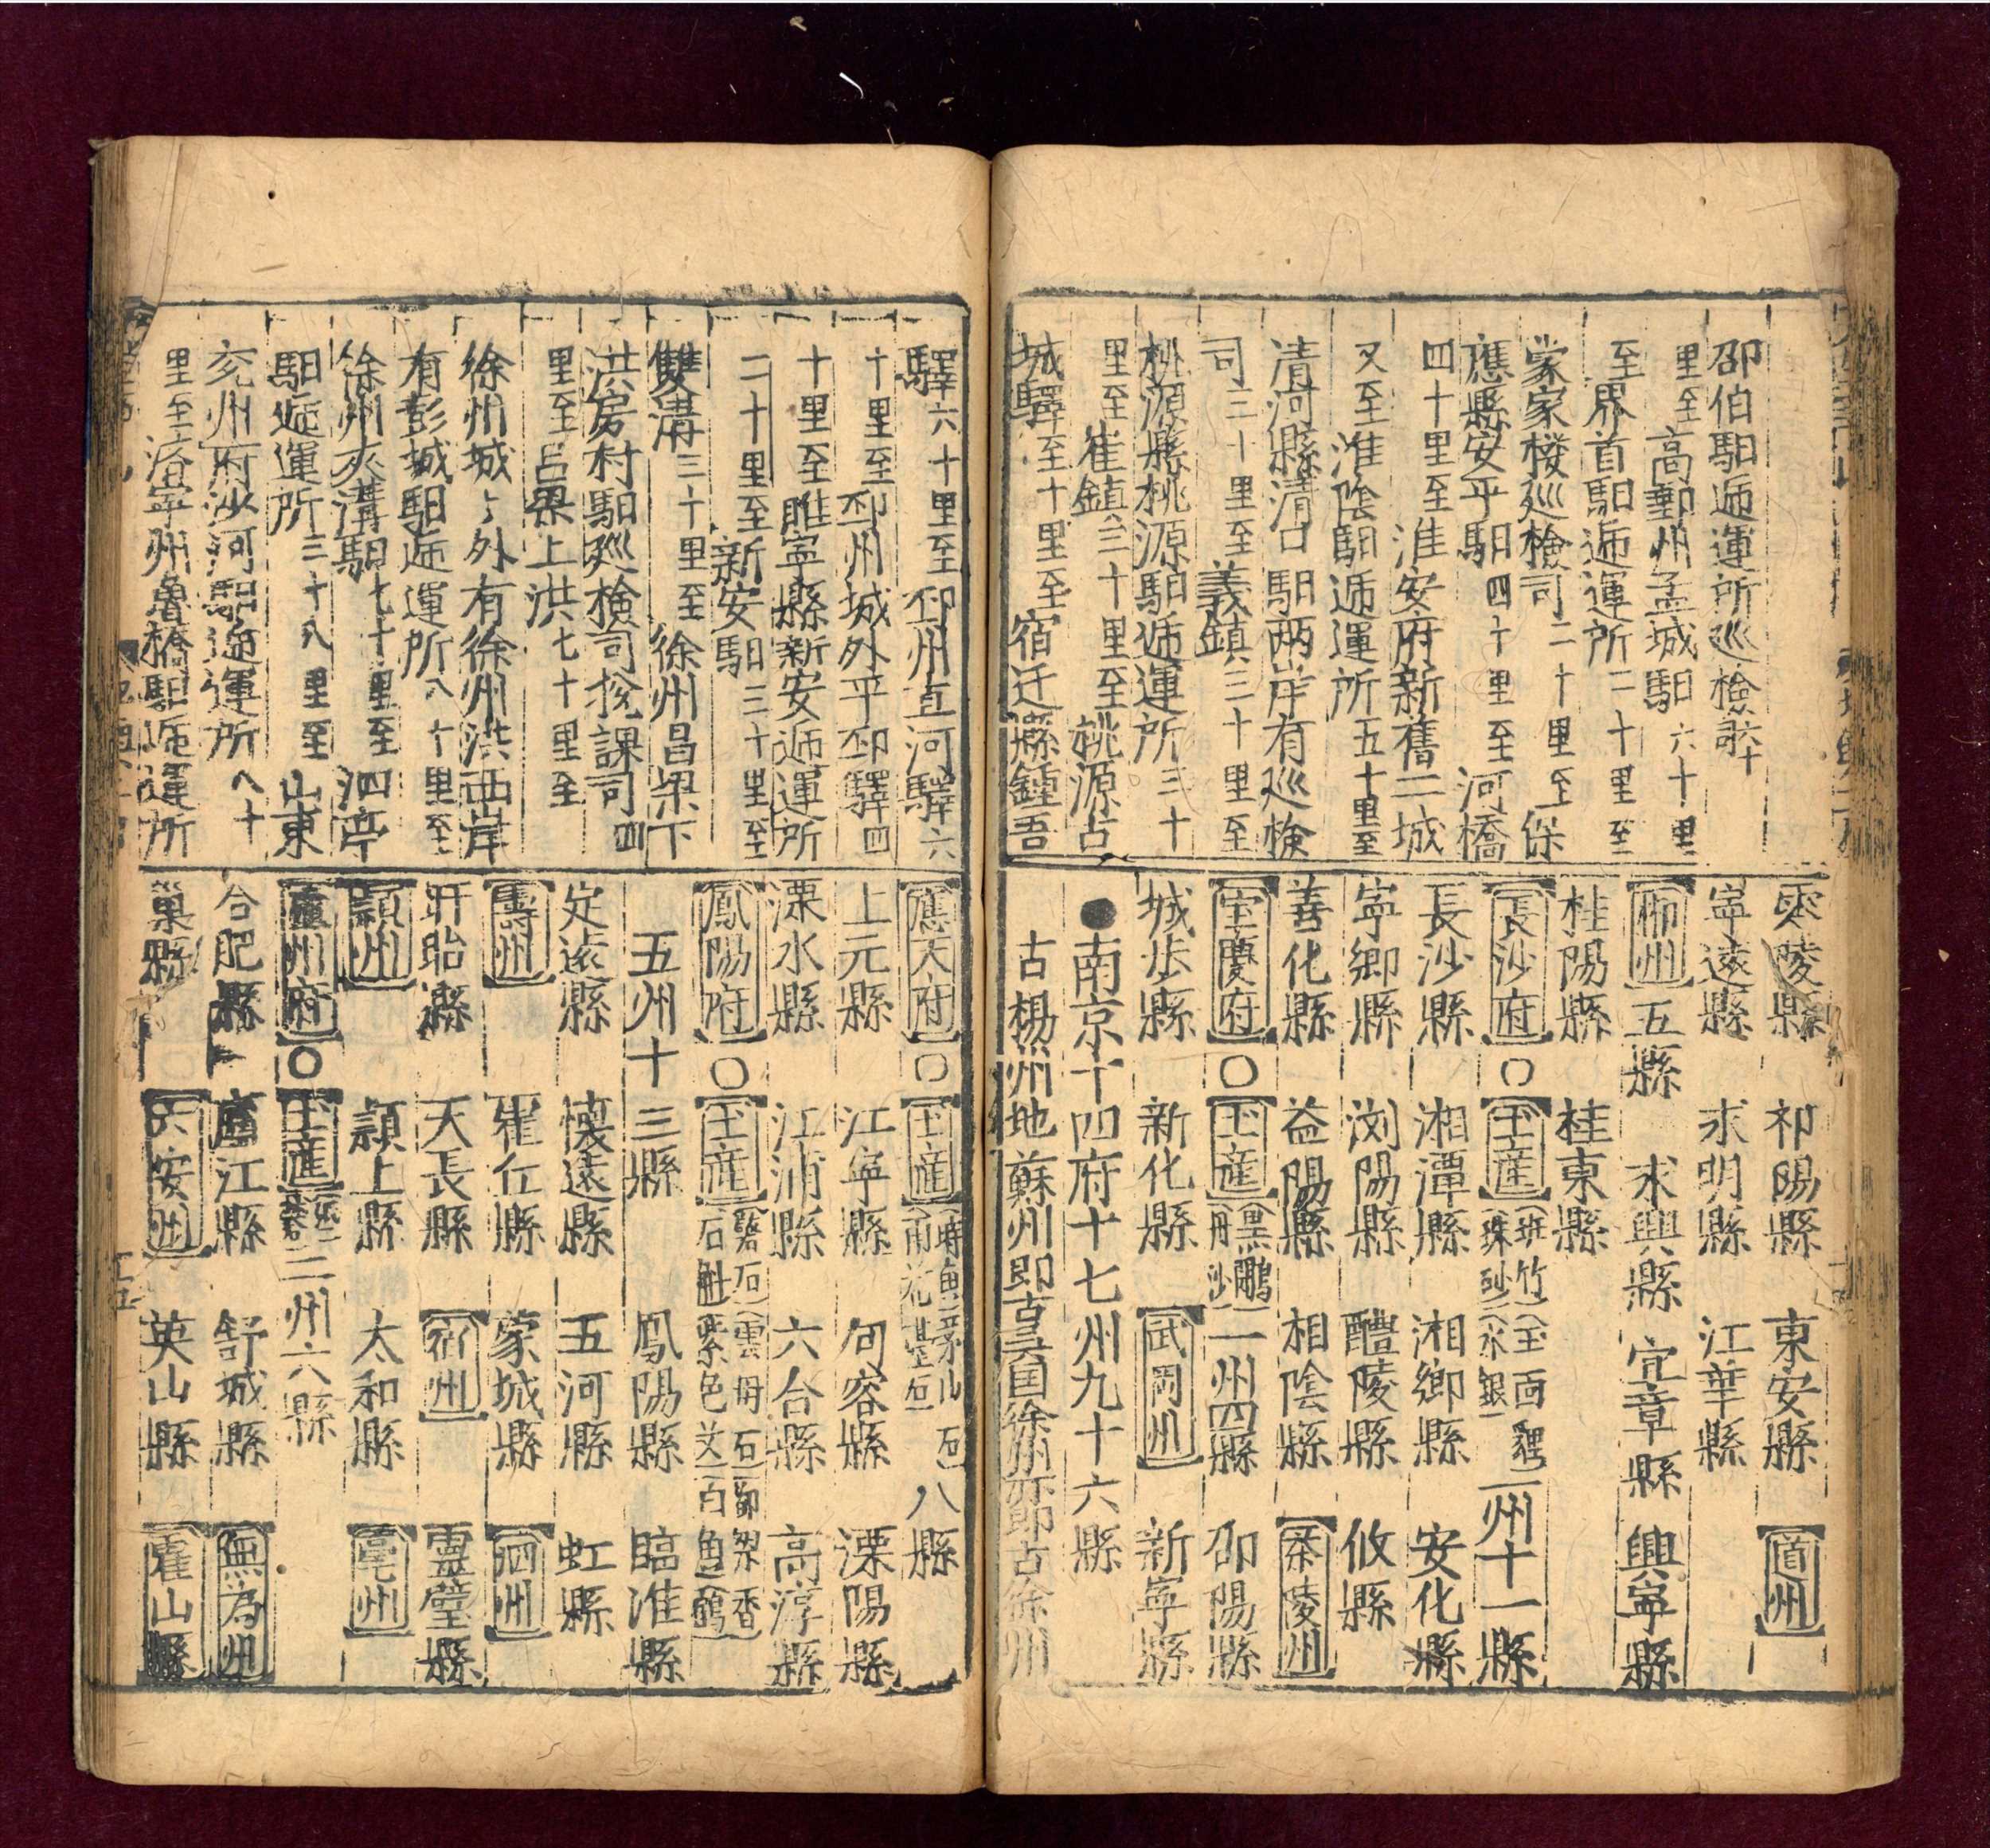 邵伯馹逓運所巡檢
里至高郵州孟城馹六十里
至界首馹逓運所二十里至
蒙家樓廵檢司二十里至保
應縣安平馹四十里至河橋
四十里至淮安府新舊二城
又至淮陰馹逓運所五十里至
清河縣清口馹两岸有廵檢
司三十里至義鎮三十里至
桃源縣桃源馹逓運所三十
里至崔鎮三十里至姚源古
城驛至十里至宿迁縣鍾吾
零陵縣 祁陽縣 東安縣 道州
寧遠縣 永明縣 江華縣
郴州 五縣 永興縣 宜章縣 興寧縣
桂陽縣 桂東縣
長沙府〇土産 班竹 玉面貍 珠砂 水銀 一州十一縣
長沙縣 湘潭縣 湘鄉縣 安化縣
寧鄉縣 浏陽縣 醴陵縣 攸縣
善化縣 益陽縣 相陰縣 茶陵州
宝慶府〇土産 黑鵰 丹沙 一州四縣 邵陽縣
城步縣 新化縣 武岡州 新寧縣
●南京十四府十七州九十六縣
古楊州地蘇州即古吴国徐州亦即古徐州
驛六十里至邳州直河驛六
十里至邳州城外平邳驛四
十里至睢寧縣新安逓運所
二十里至新安馹三十里至
雙溝三十里至徐州昌梁下
洪房村馹廵檢司挩課司四
里至吕梁上洪七十里至
徐州城〻外有徐州洪西岸
有彭城馹逓運所八十里至
徐州夾溝馹七十里至泗亭
馹逓運所三十八里至山東
兖州府沙河馹逓運所八十
里至済寧州魯橋馹逓運所
應天府〇土産 鰣魚 茅山石 雨花臺石 八縣
上元縣 江寧縣 句容縣 溧陽縣
溧水縣 江浦縣 六合縣 高淳縣
鳳陽府〇土産 磬石 雲母石 石 紫色 白魚 鶴
五州十三縣 鳳陽縣 臨淮縣
定遠縣 懐遠縣 五河縣 虹縣
壽州 崔仁縣 蒙城縣 泗州
盱眙縣 天長縣 宿州 靈璧縣
頴州 頴上縣 太和縣 亳州
廬州府〇土産 二州六縣
合肥縣 廬江縣 舒城縣 無為州
巢縣 六安州 英山縣 霍山縣